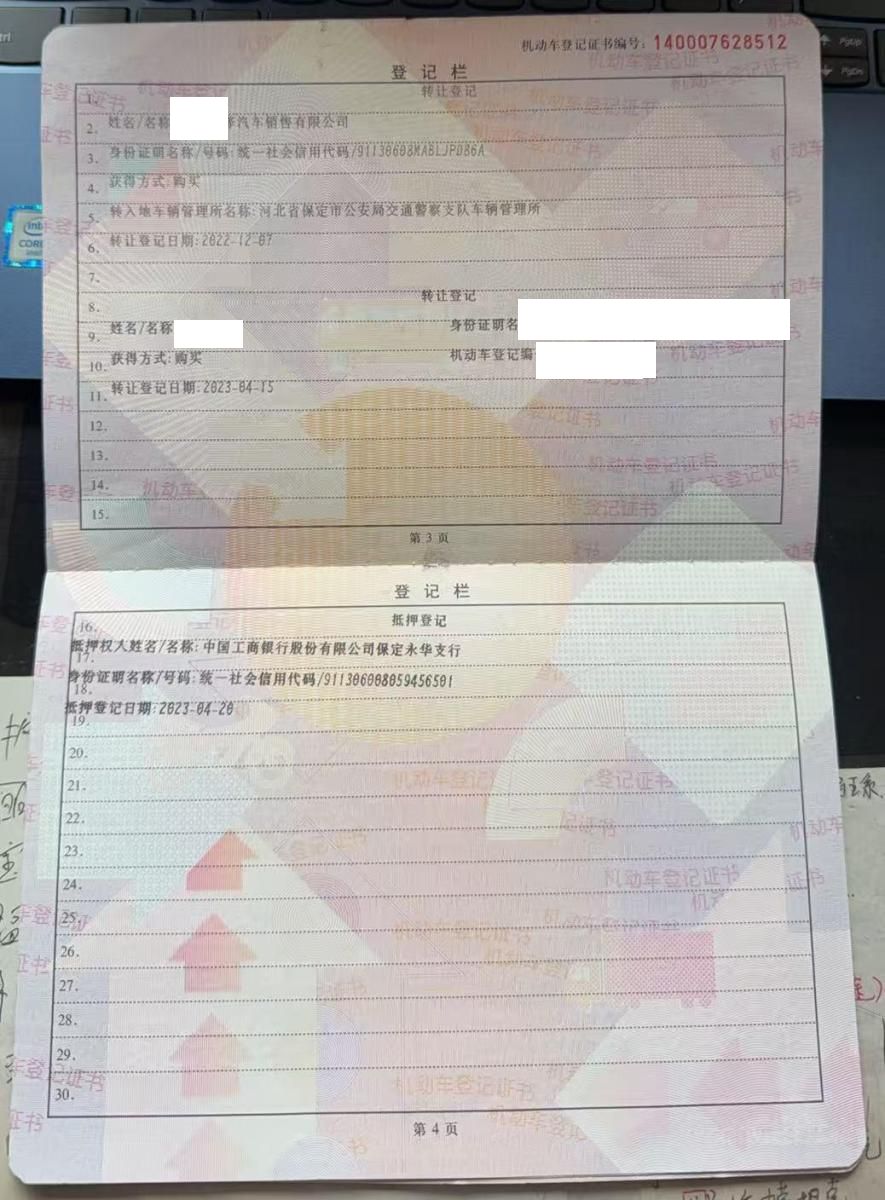 机动车登记证书编号: 140007628512
登记栏
1. 转让登记
2. 姓名/名称 汽车销售有限公司
3. 身份证明名称/号码:统一社会信用代码/91130608MABLJPD86A
4. 获得方式:购买
5. 转入地车辆管理所名称:河北省保定市公安局交通警察支队车辆管理所
6. 转让登记日期:2022-12-07
7.
8. 转让登记
9. 姓名/名称 身份证明名
10. 获得方式:购买 机动车登记编
11. 转让登记日期:2023-04-15
12.
13.
14.
15.
第 3 页
登记栏
16. 抵押登记
17. 抵押权人姓名/名称:中国工商银行股份有限公司保定永华支行
18. 身份证明名称/号码:统一社会信用代码/911306008059456501
19. 抵押登记日期:2023-04-20
20.
21.
22.
23.
24.
25.
26.
27.
28.
29.
30.
第 4 页